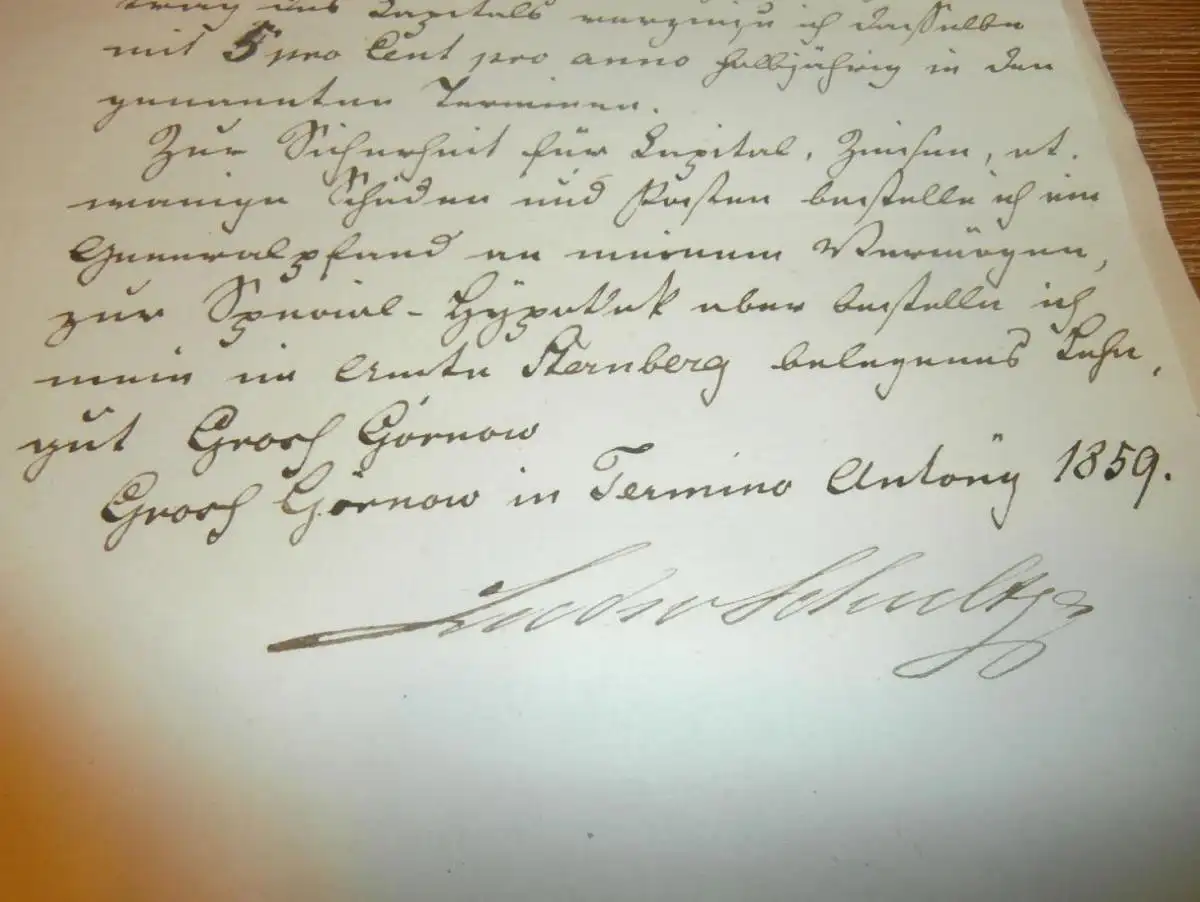 trag des Capitals verzinse ich dasselbe
mit 5 pro Cent pro anno halbjährig in den
genannten Terminen.
Zur Sicherheit für Capital, Zinsen, et-
wanige Schäden und Kosten bestelle ich ein
Generalpfand an meinem Vermögen,
zur Special-Hypothek aber bestelle ich
mein im Amte Sternberg belegenes Lehn-
gut Grosh Görnow
Grosh Görnow in Termino Antony 1859.
Schultze